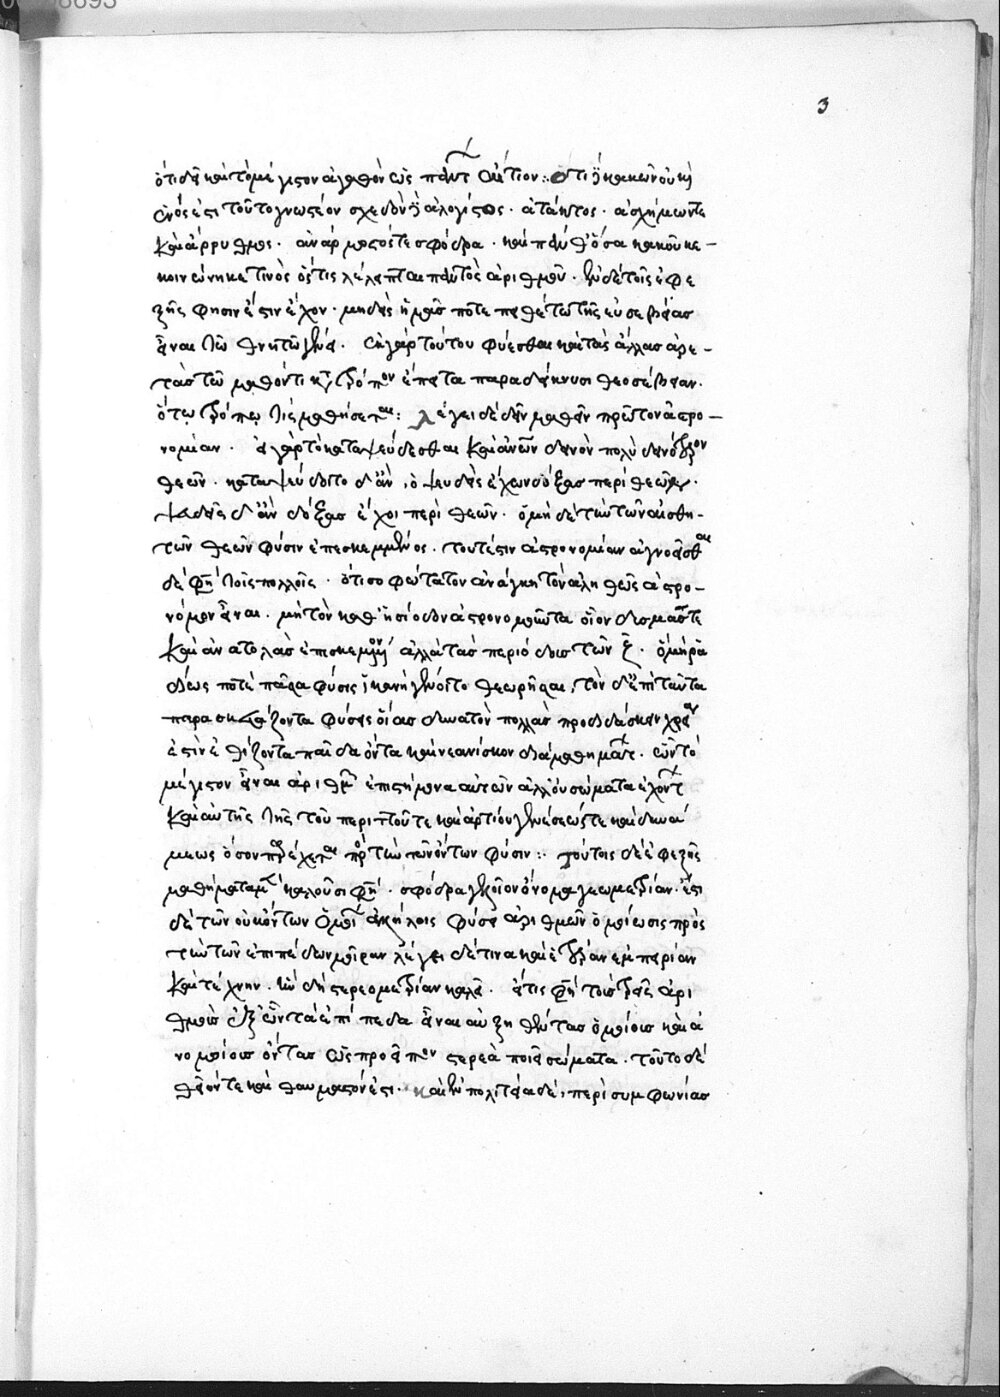 3
ὅτι δὲ καὶ τὸ μέγιστον ἀγαθὸν ὡς πάντων αἴτιον: ὅτι δὲ κακῶν οὐκ ἦν
ἑνός ἐστι τοῦτο γνωστέον σχεδὸν δὲ ἀλογίστος. ἀτάκτος. ἀσχήμων τε
καὶ ἄρρυθμος. ἀνάρμοστός τε σφόδρα. καὶ πάνθ' ὅσα κακοῦ κε-
κοινώνηκέ τινος ὅστις λέλειπται παντὸς ἀριθμοῦ. ἐν δὲ τοῖς ἐφε
ξῆς φησιν ἔστιν ἔχον. μηδεὶς ἡμᾶς ποτε πειθέτω τῆς εὐσεβείας
εἶναι τῷ θνητῷ γένει. ἐκ γὰρ τούτου φύεσθαι καὶ τὰς ἄλλας ἀρε-
τὰς τῷ μαθόντι κατὰ τρόπον ἔπειτα παραδείκνυσι θεοσέβειαν.
ὅτῳ τρόπῳ τις μαθήσεται: λέγει δὲ δεῖν μαθεῖν πρῶτον ἀστρο-
νομίαν. εἰ γὰρ τὸ καταψεύδεσθαι καὶ ἀνθρώπων δεινὸν πολὺ δεινότερον
θεῶν. καταψεύδοιτο δ' ἂν, ὁ ψευδεῖς ἔχων δόξας περὶ θεῶν.
ψευδεῖς δ' ἂν δόξας ἔχοι περὶ θεῶν. ὁ μηδὲ τὴν τῶν αἰσθη-
τῶν θεῶν φύσιν ἐπεσκεμμένος. τουτέστιν ἀστρονομίαν ἀγνοεῖσθαι
δέ φησι τοῖς πολλοῖς. ὅτι σοφώτατον ἀνάγκη τὸν ἀληθῶς ἀστρο-
νόμον εἶναι. μὴ τὸν καθ' ἡσίοδον ἀστρονομοῦντα οἷον δυσμάς τε
καὶ ἀνατολὰς ἐπισκεμμένον ἀλλὰ τὰς περιόδους τῶν ζ. ὃ μὴ ῥᾳ
δίως ποτὲ πᾶσα φύσις ἱκανὴ γένοιτο θεωρῆσαι, τὸν δ' ἐπὶ ταῦτα
παρασκευάζοντα φύσεις οἵας δυνατὸν πολλὰς προδιδάσκειν χρεὼν
ἐστὶν ἐθίζοντα παῖδα ὄντα καὶ νεανίσκον διὰ μαθημάτων. ὧν τὸ
μέγιστον εἶναι ἀριθμῶν ἐπιστήμην αὐτῶν ἀλλ' οὐ σώματα ἐχόντων
καὶ αὐτῆς τῆς τοῦ περιττοῦ τε καὶ ἀρτίου γενέσεώς τε καὶ δυνά
μεως ὅσον παρέχεται πρὸς τὴν τῶν ὄντων φύσιν: τούτοις δὲ ἐφεξῆς
μαθήματα μὲν καλοῦσί φησι. σφόδρα γελοῖον ὄνομα γεωμετρίαν. ἔστι
δὲ τῶν οὐκ ὄντων ὁμοίων ἀλλήλοις φύσει ἀριθμῶν ὁμοίωσις πρὸς
τὴν τῶν ἐπιπέδων μοῖραν λέγει δέ τινα καὶ ἑτέραν ἐμπειρίαν
καὶ τέχνην. ἣν δὴ στερεομετρίαν καλεῖ. εἴ τις φησὶ τοὺς τρεῖς ἀρι
θμοὺς ἐξ ὧν τὰ ἐπίπεδα εἶναι αὐξηθέντας ὁμοίους καὶ ἀ
νομοίους ὄντας ὡς προεῖπον στερεὰ ποιεῖ σώματα. τοῦτο δὲ
θεῖόν τε καὶ θαυμαστόν ἐστι. καὶ ἐν πολιτείᾳ δὲ, περὶ συμφωνίας